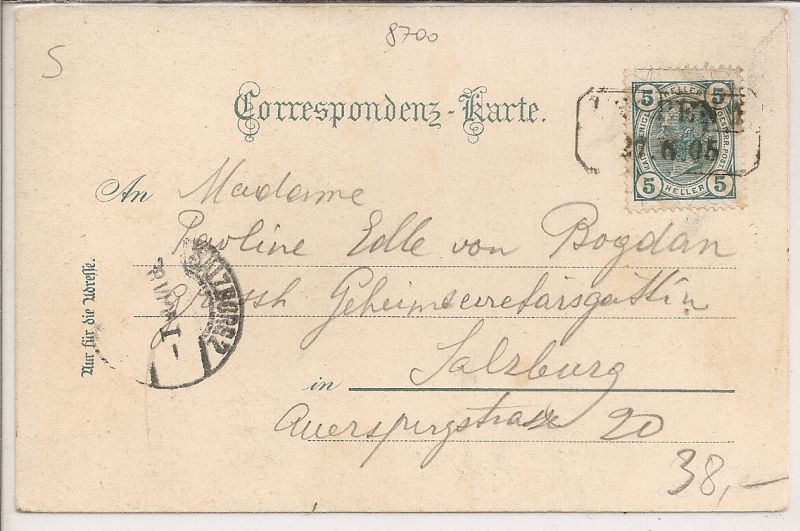 8700
S
Correspondenz-Karte.
5 HELLER 5
5 HELLER 5
27 6 05
An Madame
Pauline Edle von Bogdan
Grossh Geheimsecretärsgattin
in Salzburg
Auerspergstrasse 20
Nur für die Adresse.
SALZBURG 2
38,-